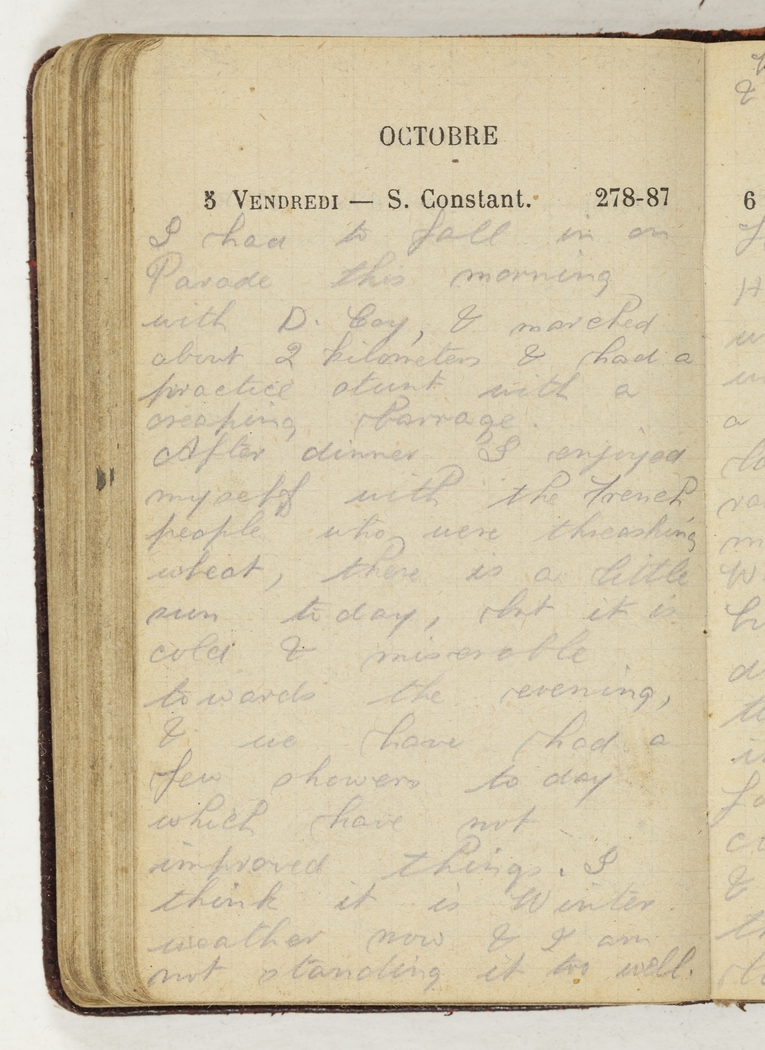 OCTOBRE
5 VENDREDI — S. Constant. 278-87
I had to fall in on
Parade this morning
with D. Coy, & marched
about 2 kilometers & had a
practice stunt with a
creaping barrage.
After dinner I enjoyed
myself with the French
people who were threashing
wheat, there is a little
sun to day, but it is
cold & miserable
towards the evening,
& we have had a
few showers to day
which have not
improved things. I
think it is Winter
weather now & I am
not standing it too well.
6